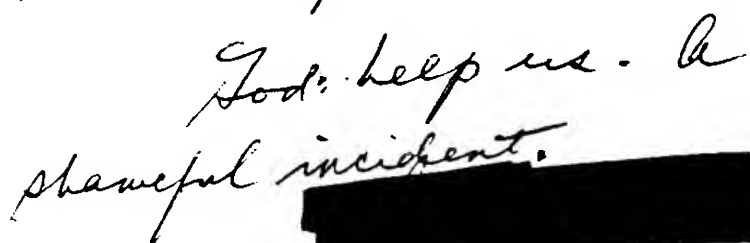 God: help us. A
shameful incident.